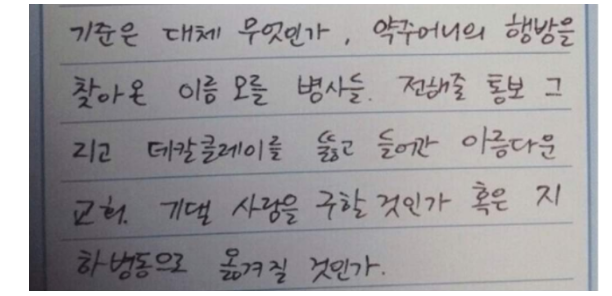 기준은 대체 무엇인가, 약주머니의 행방을
찾아온 이름 모를 병사들. 전해줄 통보 그
리고 데칼클레이를 뚫고 들어간 아름다운
교회. 기댈 사람을 구할 것인가 혹은 지
하병동으로 옮겨질 것인가.